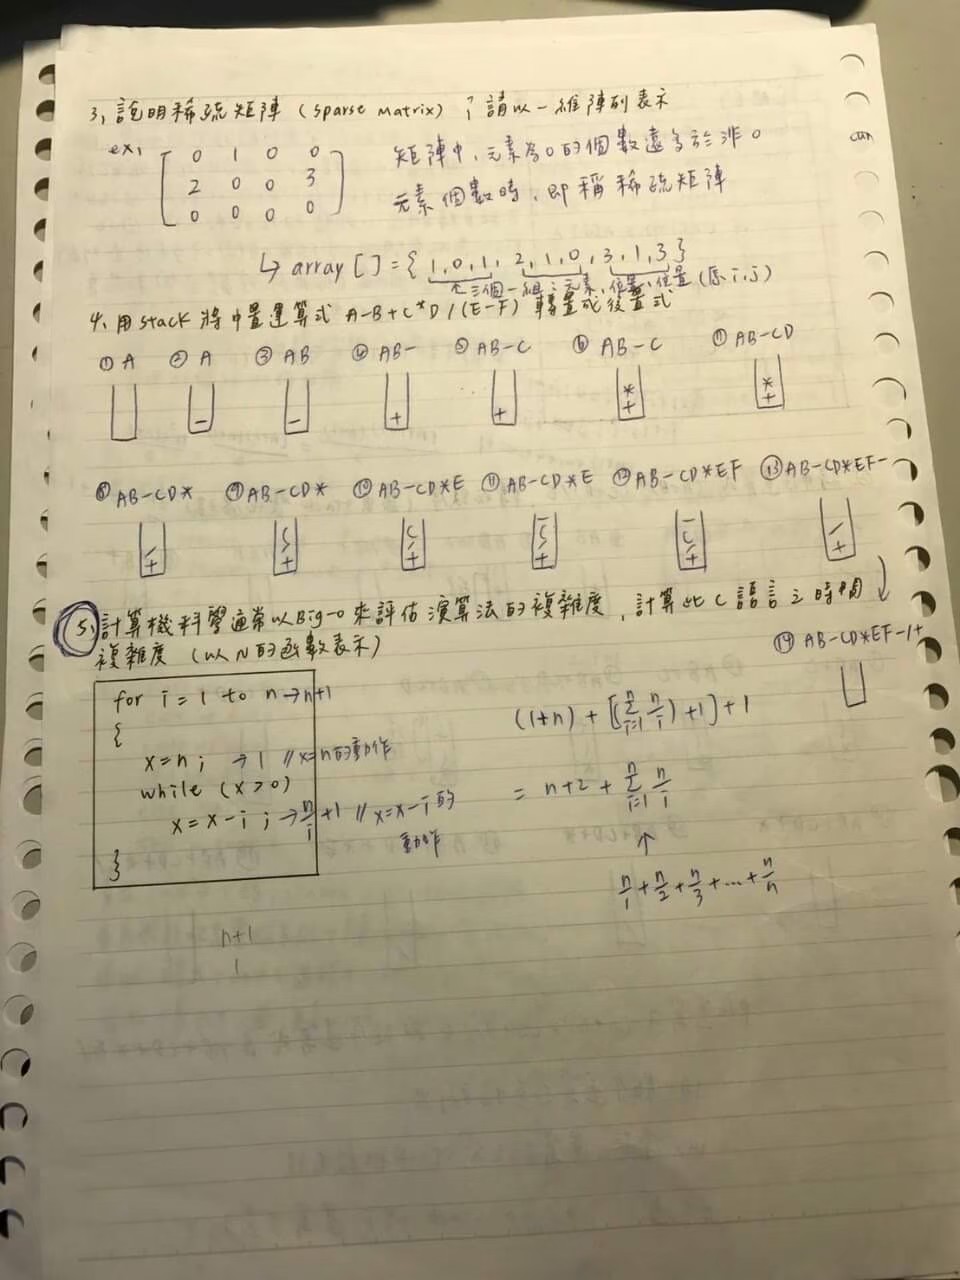 3, 說明稀疏矩陣 (sparse matrix), 請以一維陣列表示
ex,
0 1 0 0
2 0 0 3
0 0 0 0
矩陣中, 元素為0的個數遠多於非0
元素個數時, 即稱稀疏矩陣
can
↳ array[] = { 1,0,1, 2,1,0, 3,1,3 }
三個一組: 元素, 位置, 位置 (原 i,j)
4, 用stack將中置運算式 A-B+C*D/(E-F) 轉置成後置式
① A ② A ③ AB ④ AB- ⑤ AB-C ⑥ AB-C ⑦ AB-CD
- - + + * + * +
⑧ AB-CD* ⑨ AB-CD* ⑩ AB-CD*E ⑪ AB-CD*E ⑫ AB-CD*EF ⑬ AB-CD*EF-
/ + ( / + ( / + - ( / + - ( / + / +
⑭ AB-CD*EF-/+
5, 計算機科學通常以Big-o來評估演算法的複雜度, 計算此C語言之時間
複雜度 (以N的函數表示)
for i = 1 to n → n+1
{
x=n; → 1 // x=n的動作
while (x>0)
x = x-i; → n/i +1 // x=x-i的
動作
}
(1+n) + [(Σ_{i=1}^{n} n/i) +1] +1
= n+2 + Σ_{i=1}^{n} n/i
↑
n/1 + n/2 + n/3 + ... + n/n
n+1
1